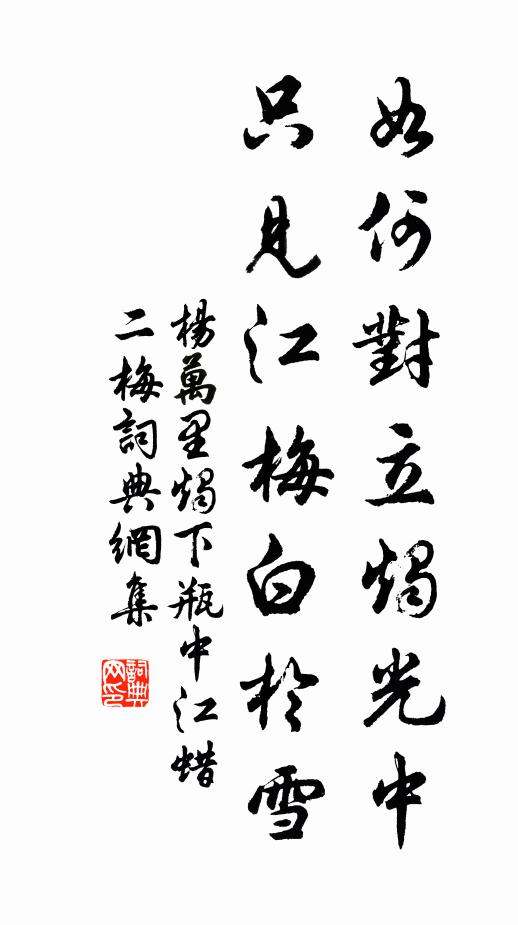 如何對立燭光中
只見江梅白於雪
楊萬里燭下瓶中江蜡
二梅詞典網集
詞典網印